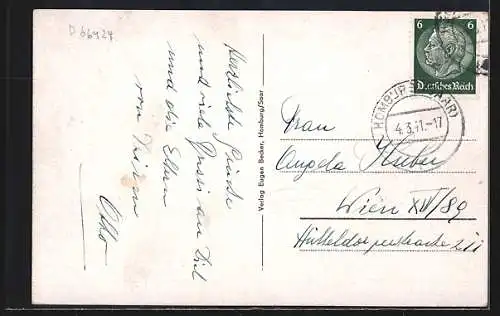 D 66427
Herzlichste Grüße
und viele Bussi an Dich
und die Eltern
von Deinem
Otto
Verlag Eugen Becker, Homburg/Saar
6 6
Deutsches Reich
HOMBURG (SAAR)
4.3.41.-17
Frau
Angela Huber
Wien XIV/89
Hütteldorferstrasse